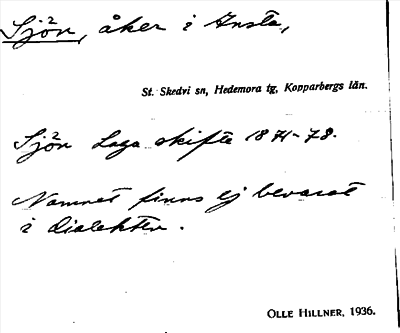 Sjön, åker i Ansta,
St. Skedvi sn, Hedemora tg, Kopparbergs län.
Sjön Laga skifte 1871-78.
Namnet finns ej bevarat
i dialekten.
OLLE HILLNER, 1936.